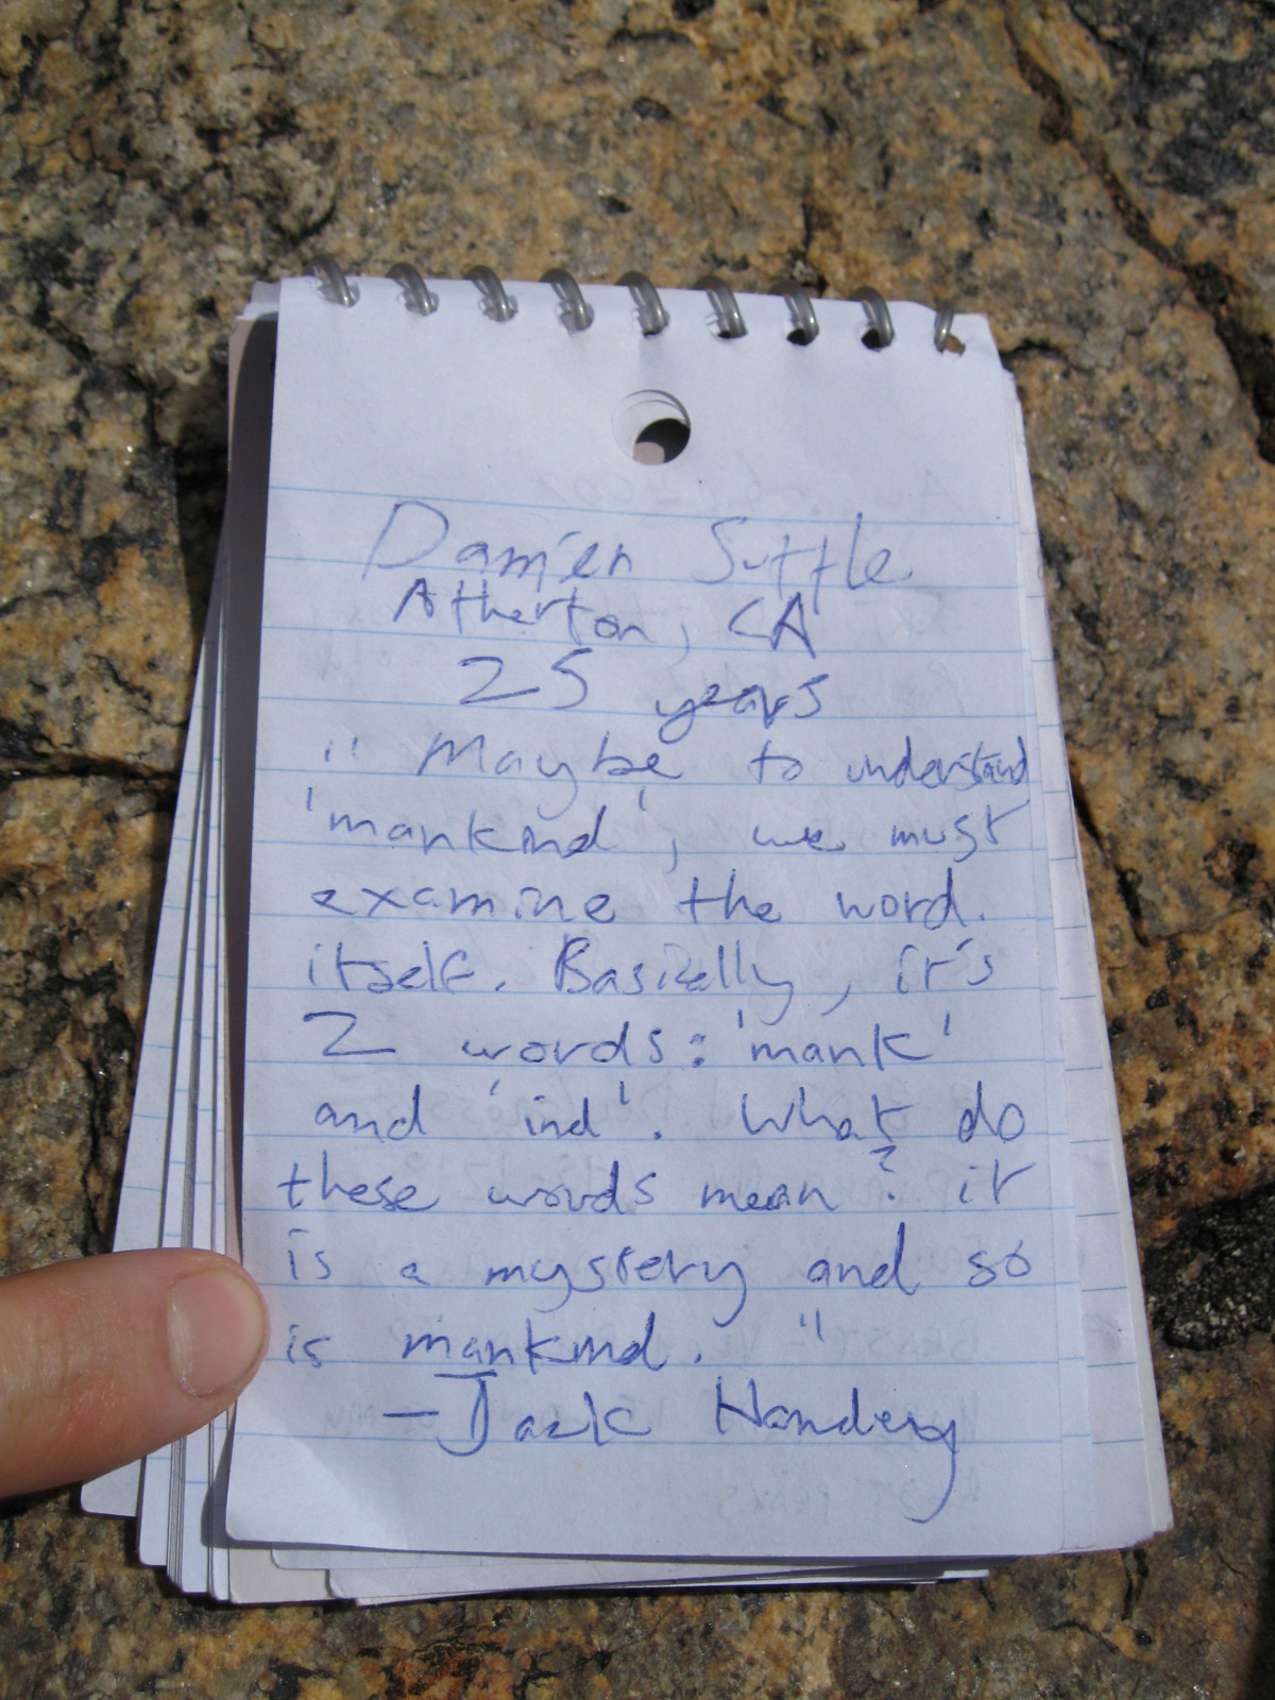 Damien Suttle
Atherton, CA
25 years
" Maybe to understand
'mankind', we must
examine the word.
itself. Basically, it's
2 words: 'mank'
and 'ind'. What do
these words mean? it
is a mystery and so
is mankind."
- Jack Handey